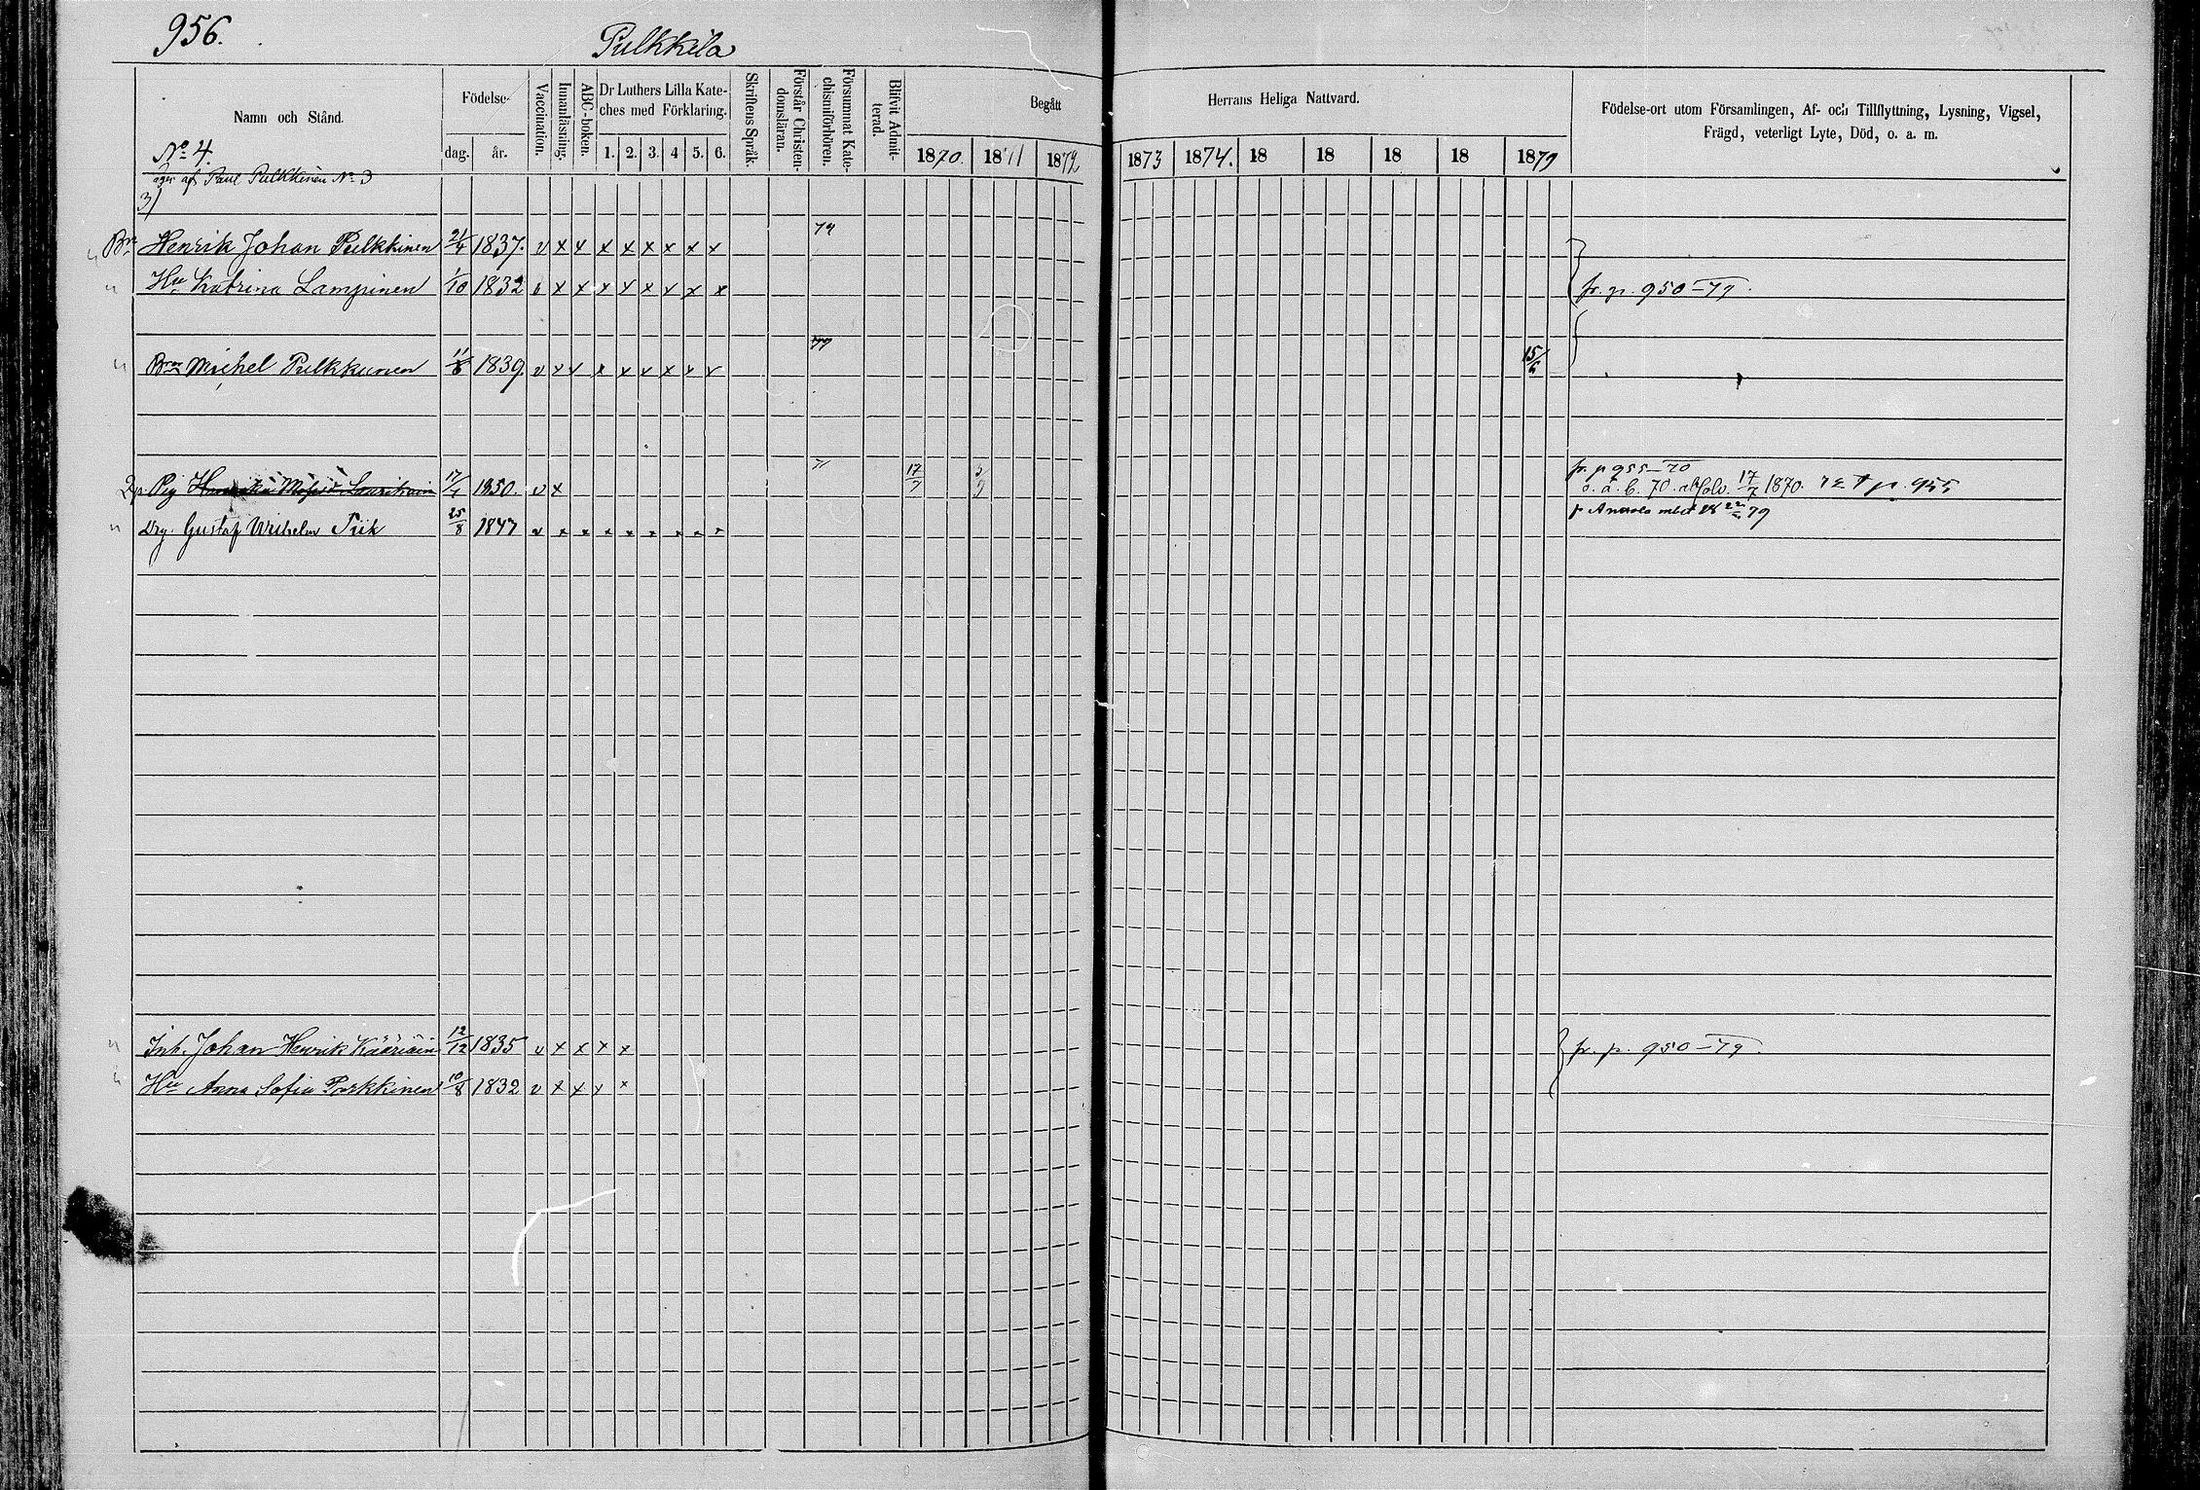 956.
Pulkkila
Namn och Stånd.
Födelse-
dag.
år.
Vaccination.
Innanläsning.
ABC-boken.
Dr Luthers Lilla Kate-
ches med Förklaring.
1. 2. 3. 4 5. 6.
Skriftens Språk.
Förstår Christen-
domsläran.
Försummat Kate-
chismiförhören.
Blifvit Admit-
terad.
Begått
Herrans Heliga Nattvard.
1870. 1871 1872 1873 1874. 18 18 18 18 1879
Födelse-ort utom Församlingen, Af- och Tillflyttning, Lysning, Vigsel,
Frägd, veterligt Lyte, Död, o. a. m.
No 4.
äges af Paul Pulkkinen No 3
3)
79
Bn Henrik Johan Pulkkinen 21/4 1837. v x x x x x x x x
Hu Katrina Lampinen 1/10 1832 v x x x x x x x x fr. p. 950 – 79.
77
Bror Michel Pulkkunen 11/8 1839. v x x x x x x x x 15/6
71
Pig 17/7 1850. v x 17/7 fr. p 955 – 70
o. a. b. 70. absolv. 17/7 1870. p. 955
Drg. Gustaf Wilhelm Piik 25/8 1847 v x x x x x x x x 79
Inh. Johan Henrik Kääriäin 12/12 1835 v x x x x fr. p. 950 – 79.
Hu Anna Sofia Porkkinen 10/8 1832 v x x x x